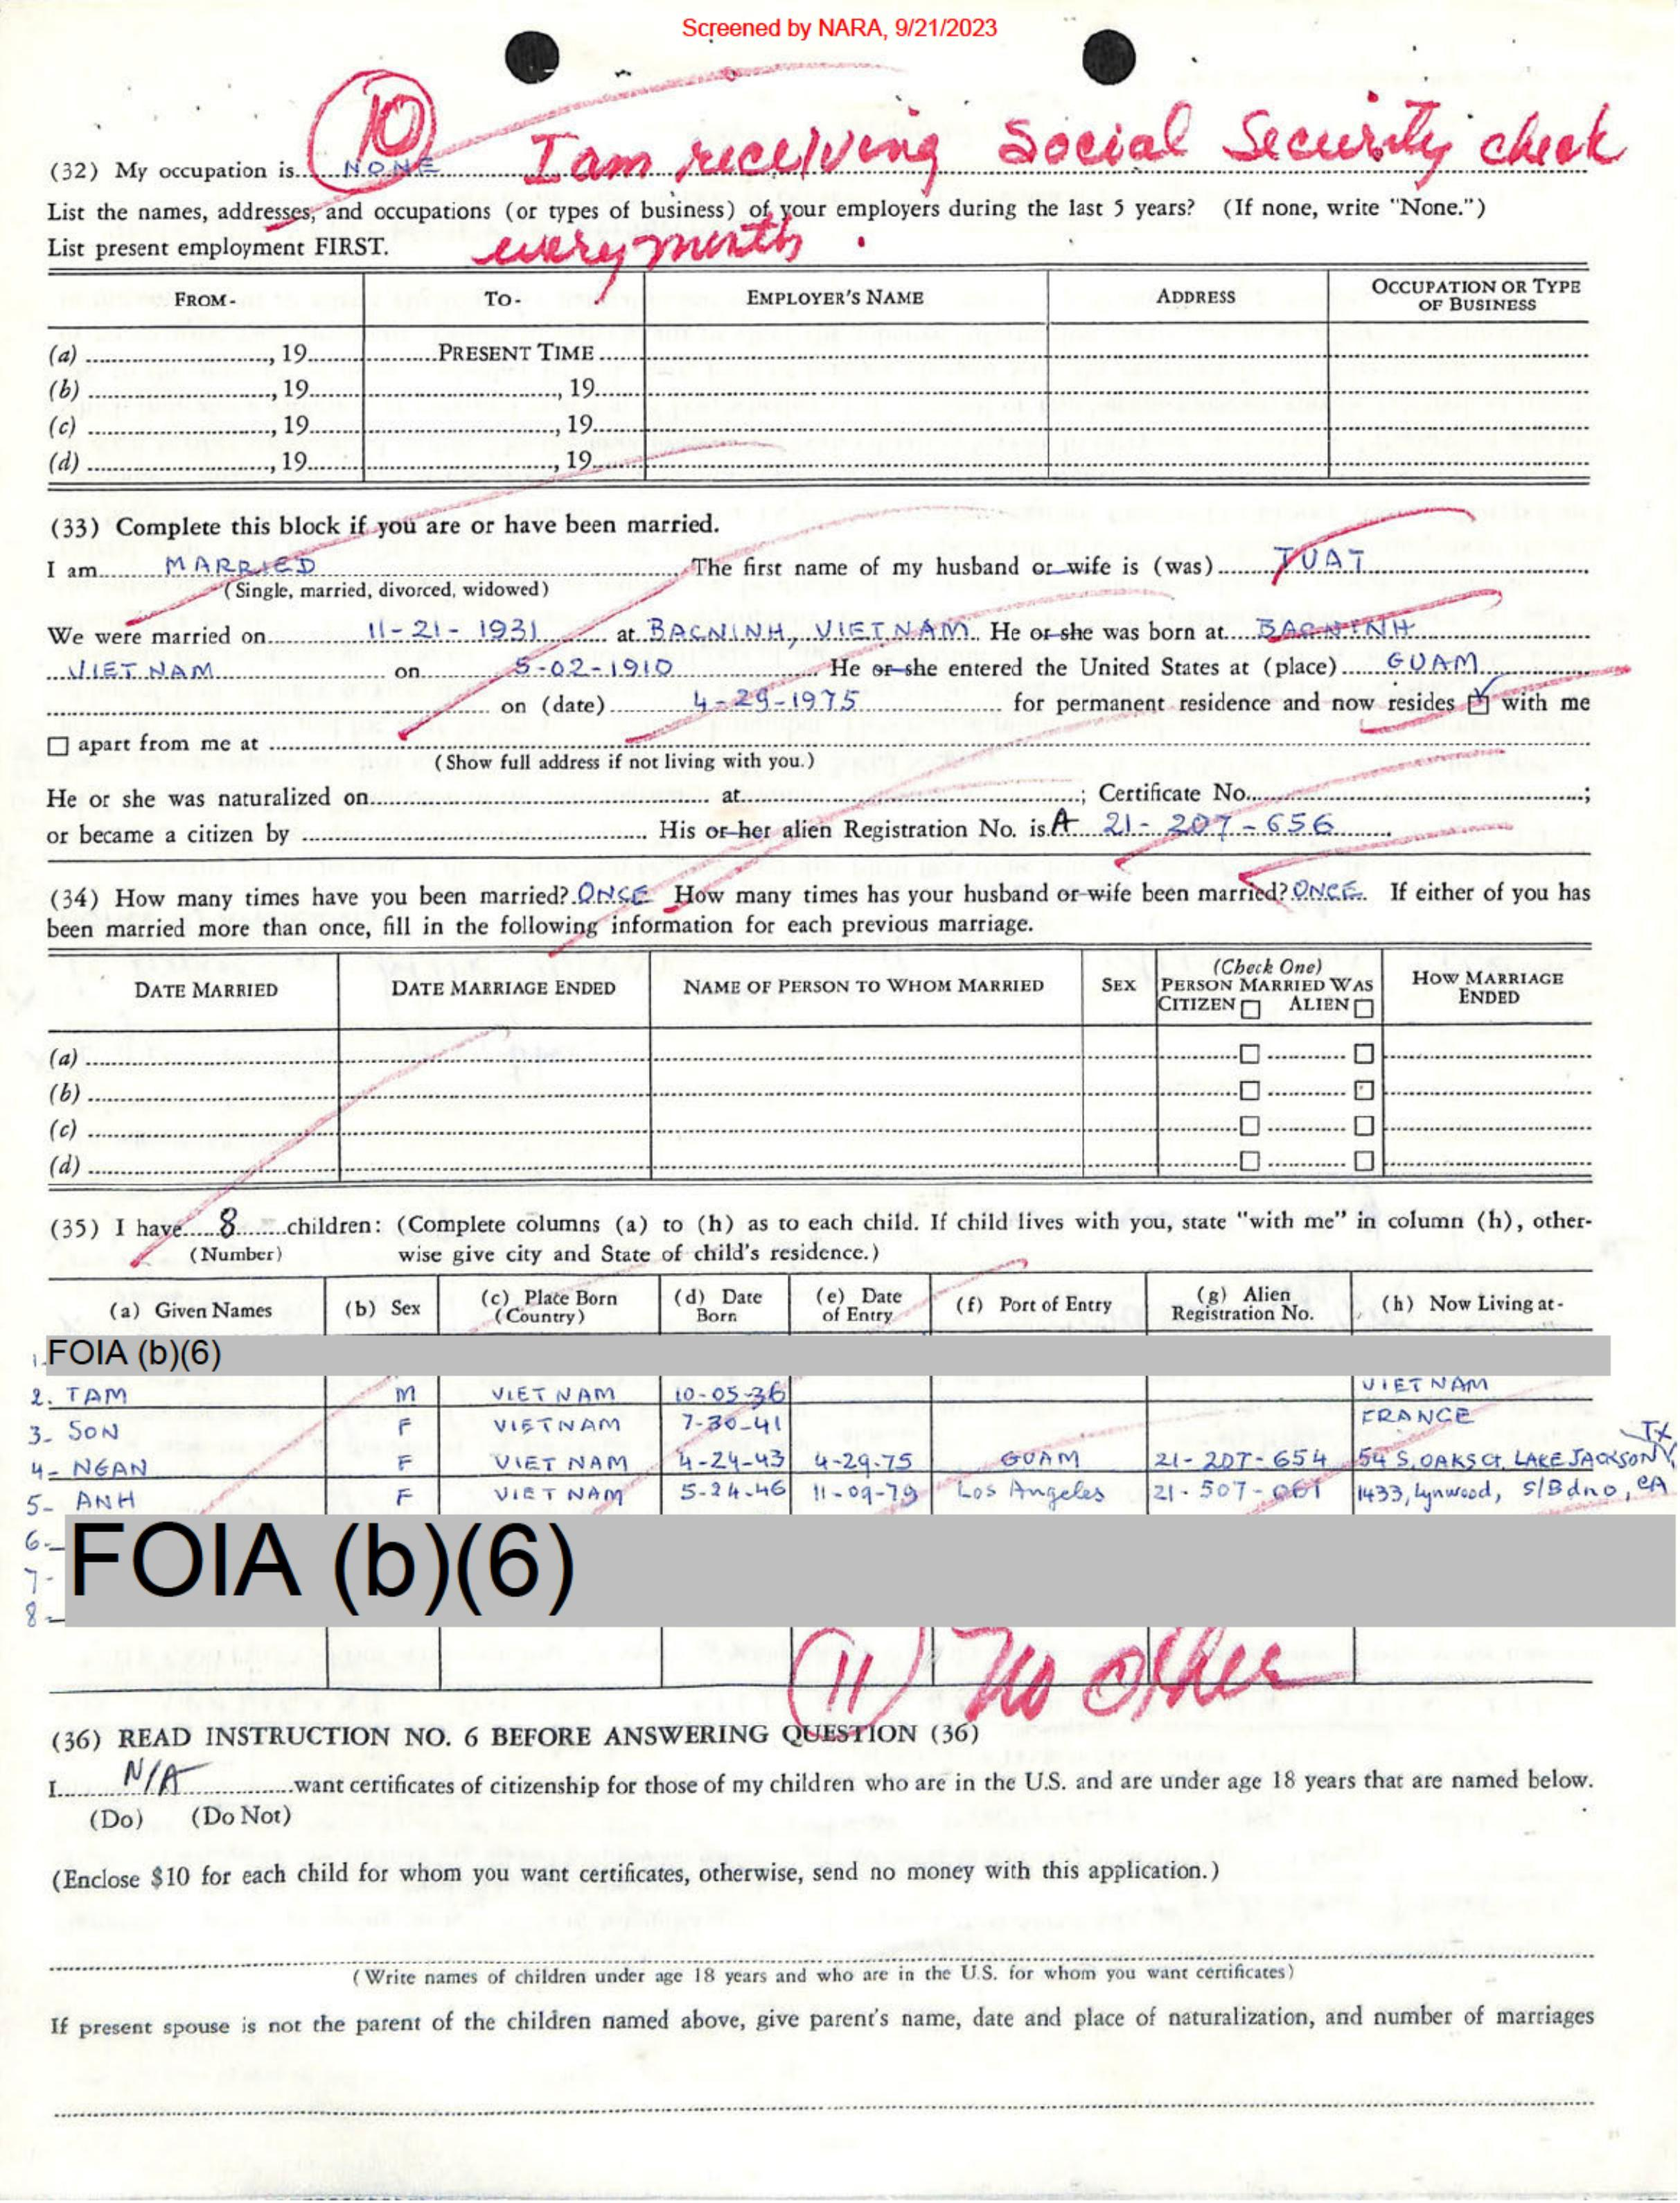 Screened by NARA, 9/21/2023
10
(32) My occupation is NONE I am receiving Social Security check
List the names, addresses, and occupations (or types of business) of your employers during the last 5 years? (If none, write "None.")
List present employment FIRST. every month.
FROM- TO- EMPLOYER'S NAME ADDRESS OCCUPATION OR TYPE OF BUSINESS
(a) , 19 PRESENT TIME
(b) , 19 , 19
(c) , 19 , 19
(d) , 19 , 19
(33) Complete this block if you are or have been married.
I am MARRIED The first name of my husband or wife is (was) TUAT
(Single, married, divorced, widowed)
We were married on 11-21-1931 at BACNINH, VIETNAM He or she was born at BACNINH
VIET NAM on 5-02-1910 He or she entered the United States at (place) GUAM
on (date) 4-29-1975 for permanent residence and now resides with me
apart from me at
(Show full address if not living with you.)
He or she was naturalized on at ; Certificate No. ;
or became a citizen by His or her alien Registration No. is A 21-207-656
(34) How many times have you been married? ONCE How many times has your husband or wife been married? ONCE. If either of you has
been married more than once, fill in the following information for each previous marriage.
DATE MARRIED DATE MARRIAGE ENDED NAME OF PERSON TO WHOM MARRIED SEX (Check One) PERSON MARRIED WAS CITIZEN ALIEN HOW MARRIAGE ENDED
(a)
(b)
(c)
(d)
(35) I have 8 children: (Complete columns (a) to (h) as to each child. If child lives with you, state "with me" in column (h), other-
(Number) wise give city and State of child's residence.)
(a) Given Names (b) Sex (c) Place Born (Country) (d) Date Born (e) Date of Entry (f) Port of Entry (g) Alien Registration No. (h) Now Living at-
1. FOIA (b)(6)
2. TAM M VIET NAM 10-05-36 VIET NAM
3- SON F VIETNAM 7-30-41 FRANCE
4- NGAN F VIET NAM 4-24-43 4-29-75 GUAM 21-207-654 54 S. OAKS Ct. LAKE JACKSON, TX
5- ANH F VIET NAM 5-24-46 11-09-79 Los Angeles 21-507-061 1433, Lynwood, S/Bdno, CA
6- FOIA (b)(6)
7-
8-
11 No other
(36) READ INSTRUCTION NO. 6 BEFORE ANSWERING QUESTION (36)
I N/A want certificates of citizenship for those of my children who are in the U.S. and are under age 18 years that are named below.
(Do) (Do Not)
(Enclose $10 for each child for whom you want certificates, otherwise, send no money with this application.)
(Write names of children under age 18 years and who are in the U.S. for whom you want certificates)
If present spouse is not the parent of the children named above, give parent's name, date and place of naturalization, and number of marriages